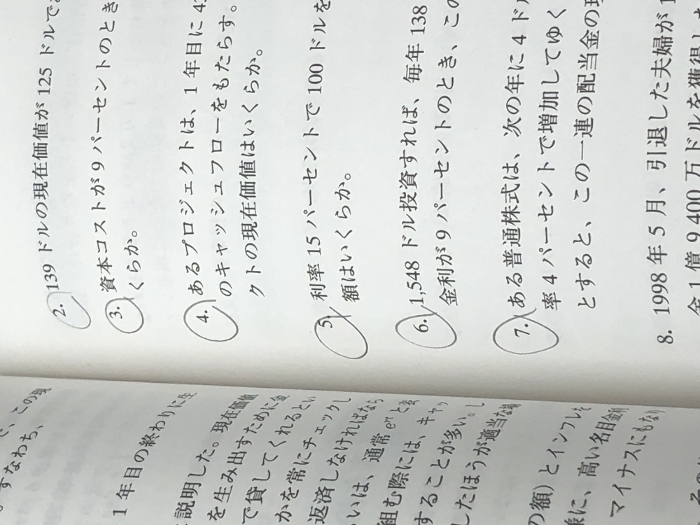 2. 139 ドルの現在価値が 125 ドルで
3. 資本コストが 9 パーセントのとき
くらか。
4. あるプロジェクトは、1 年目に 4
のキャッシュフローをもたらす。
クトの現在価値はいくらか。
5. 利率 15 パーセントで 100 ドルを
額はいくらか。
6. 1,548 ドル投資すれば、毎年 138
金利が 9 パーセントのとき、この
7. ある普通株式は、次の年に 4 ド
率 4 パーセントで増加してゆく
とすると、この一連の配当金の現
8. 1998 年 5 月、引退した夫婦が 1
金 1 億 9,400 万ドルを獲得し
、この
すなわち、
1 年目の終わりに生
説明した。現在価値
を生み出すために金
で貸してくれるとい
かを常にチェックし
返済しなければなら
いは、通常
組む際には、キャッ
することが多い。し
したほうが適当な場
の額）とインフレを
に、高い名目金利
マイナスにもなり